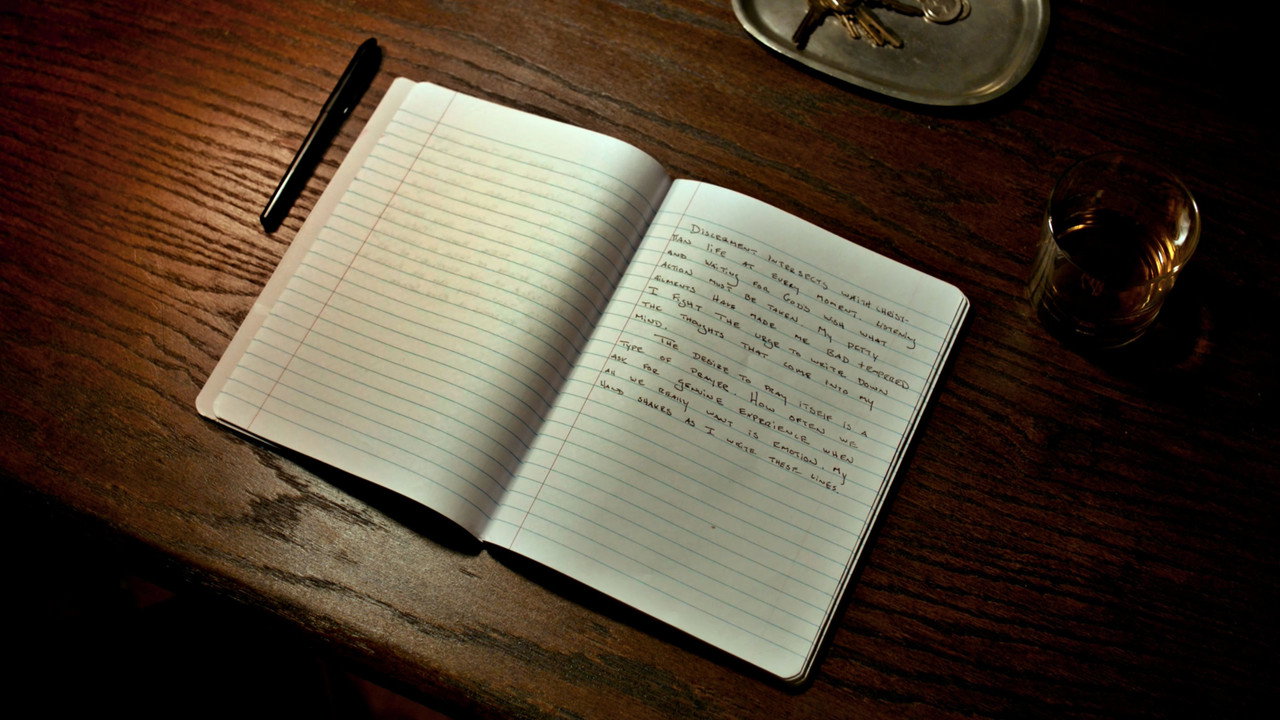 DISCERMENT INTERSECTS WHITH CHRIST-
IAN LIFE AT EVERY MOMENT. LISTENING
AND WAITING FOR GODS WISH WHAT
ACTION MUST BE TAKEN. MY PETTY
AILMENTS HAVE MADE ME BAD TEMPERED
I FIGHT THE URGE TO WRITE DOWN
THE THOUGHTS THAT COME INTO MY
MIND.
THE DESIRE TO PRAY ITSELF IS A
TYPE OF PRAYER. HOW OFTEN WE
ASK FOR GENUINE EXPERIENCE WHEN
All WE REALLY WANT IS EMOTION. MY
HAND SHAKES AS I WRITE THESE LINES.